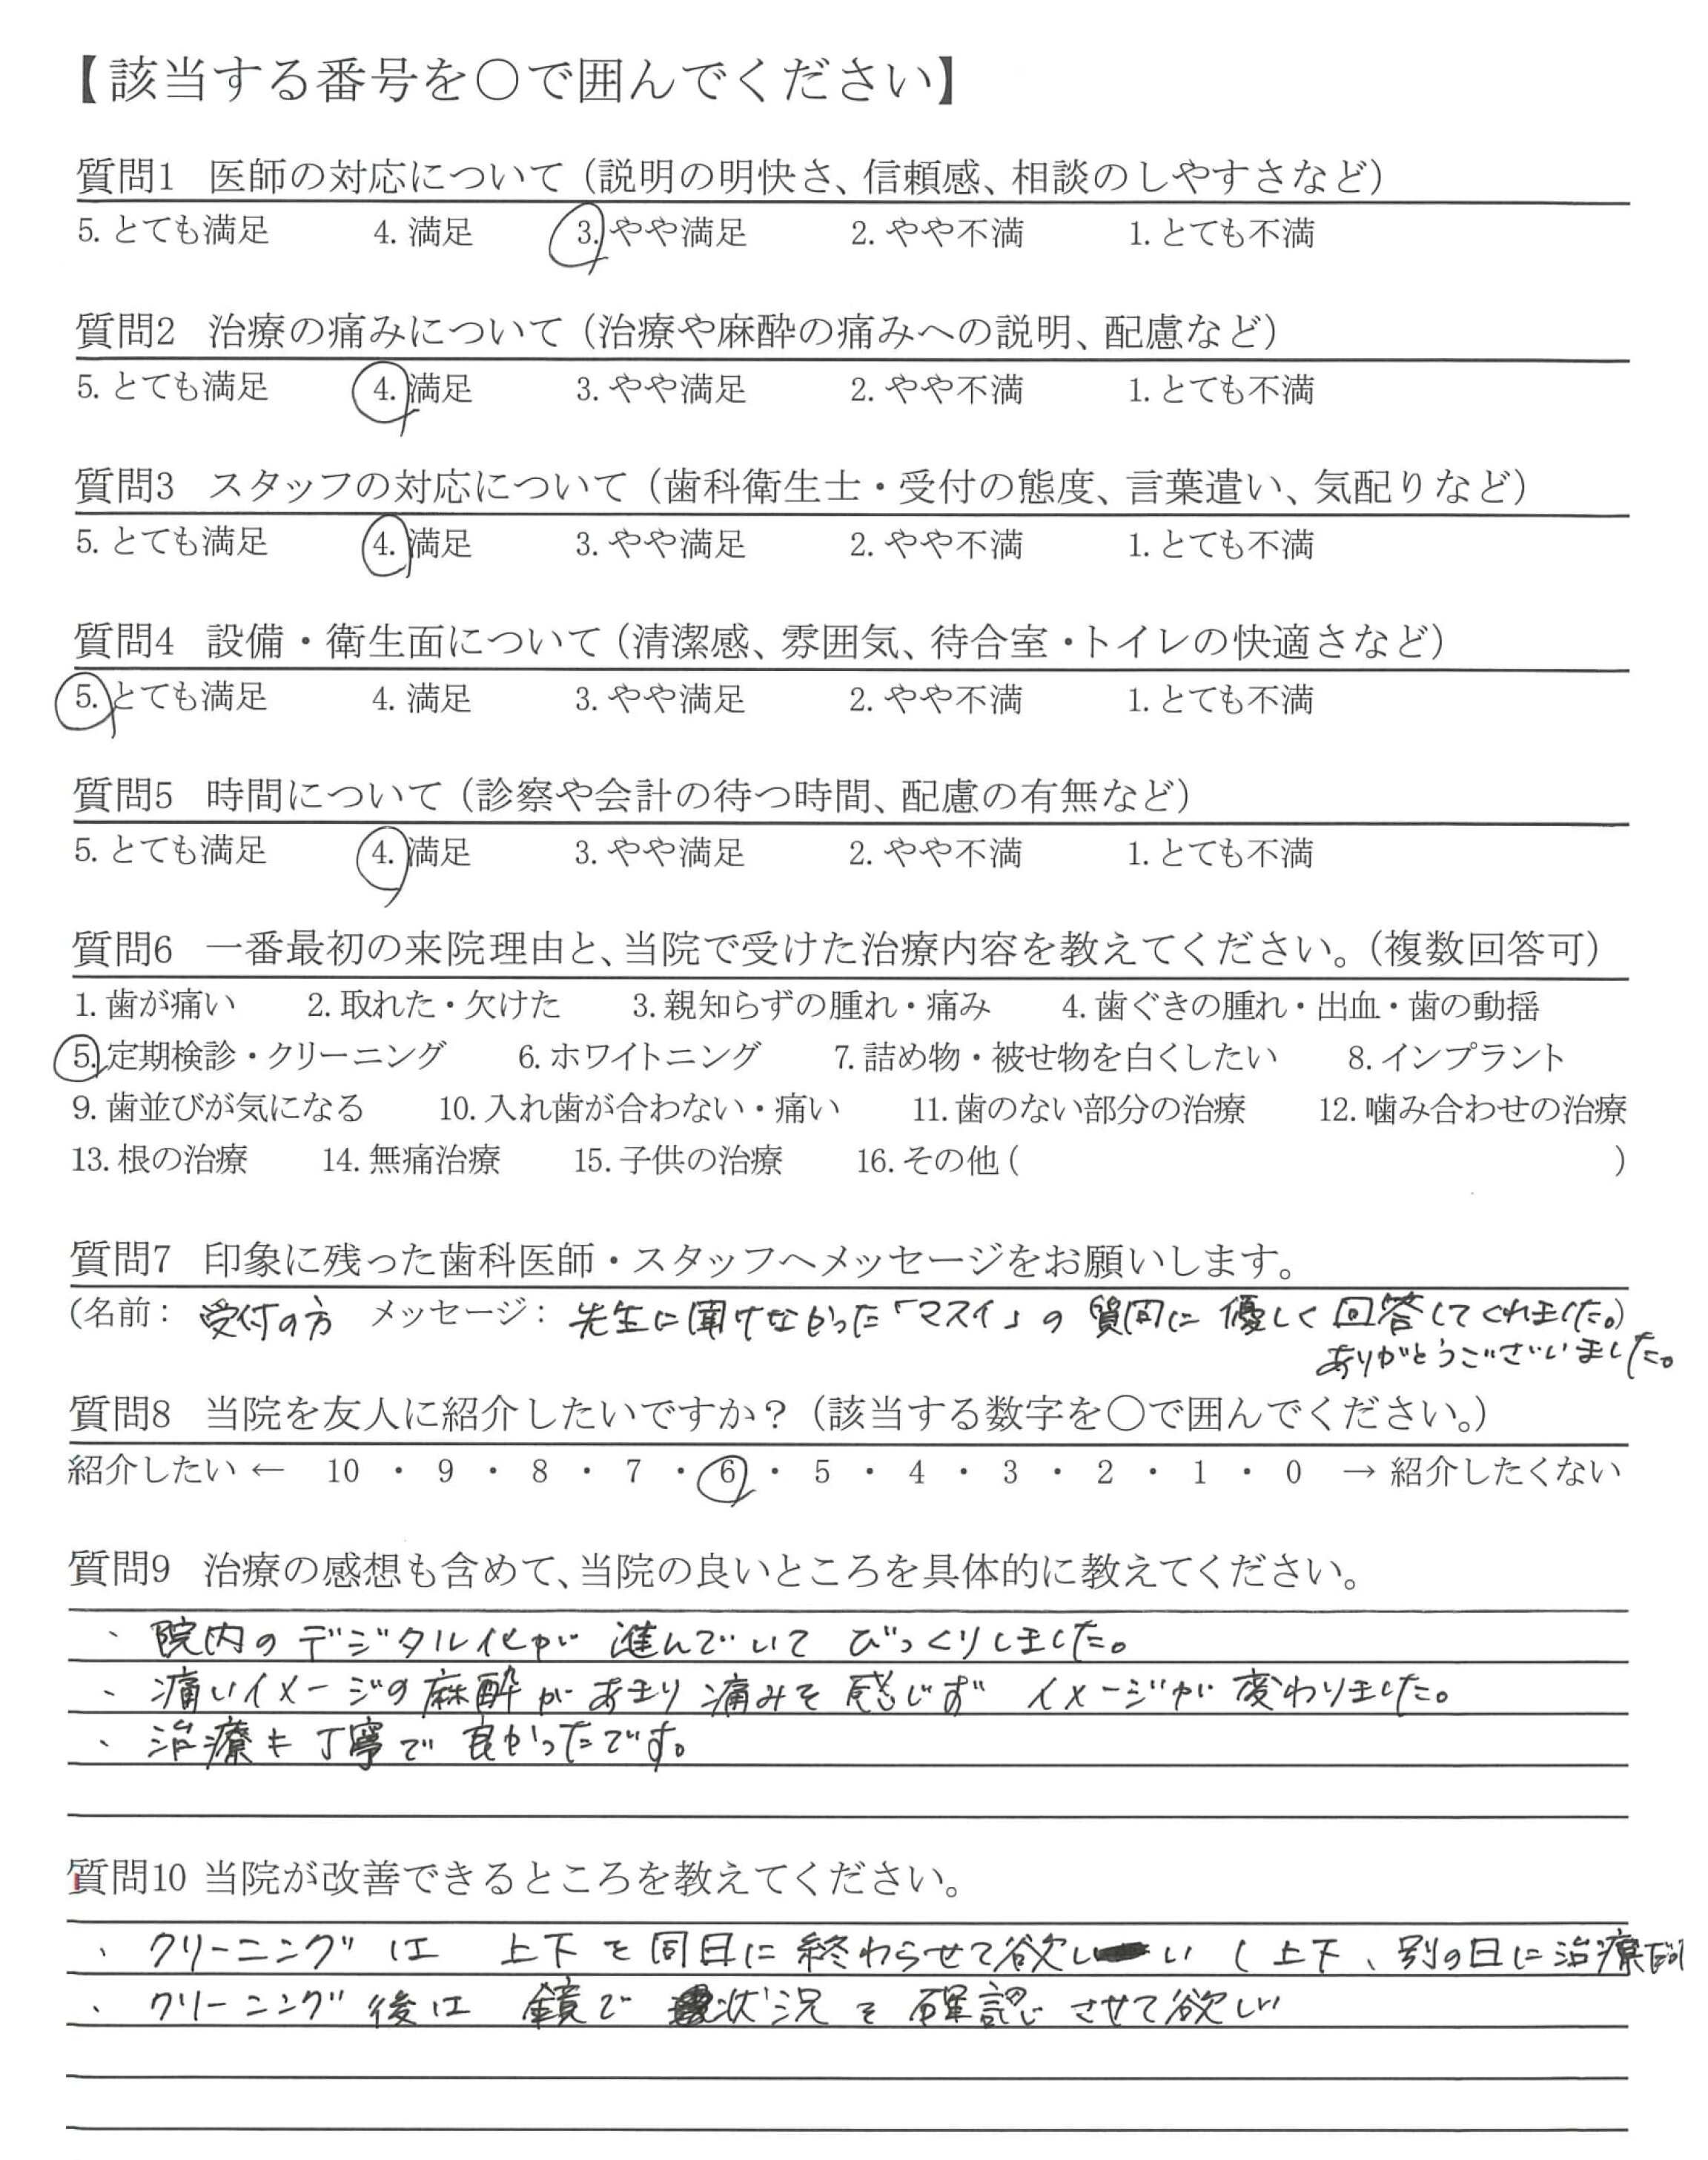 【該当する番号を〇で囲んでください】
質問1 医師の対応について（説明の明快さ、信頼感、相談のしやすさなど）
5. とても満足 4. 満足 3. やや満足 2. やや不満 1. とても不満
質問2 治療の痛みについて（治療や麻酔の痛みへの説明、配慮など）
5. とても満足 4. 満足 3. やや満足 2. やや不満 1. とても不満
質問3 スタッフの対応について（歯科衛生士・受付の態度、言葉遣い、気配りなど）
5. とても満足 4. 満足 3. やや満足 2. やや不満 1. とても不満
質問4 設備・衛生面について（清潔感、雰囲気、待合室・トイレの快適さなど）
5. とても満足 4. 満足 3. やや満足 2. やや不満 1. とても不満
質問5 時間について（診察や会計の待つ時間、配慮の有無など）
5. とても満足 4. 満足 3. やや満足 2. やや不満 1. とても不満
質問6 一番最初の来院理由と、当院で受けた治療内容を教えてください。（複数回答可）
1. 歯が痛い 2. 取れた・欠けた 3. 親知らずの腫れ・痛み 4. 歯ぐきの腫れ・出血・歯の動揺
5. 定期検診・クリーニング 6. ホワイトニング 7. 詰め物・被せ物を白くしたい 8. インプラント
9. 歯並びが気になる 10. 入れ歯が合わない・痛い 11. 歯のない部分の治療 12. 噛み合わせの治療
13. 根の治療 14. 無痛治療 15. 子供の治療 16. その他（ ）
質問7 印象に残った歯科医師・スタッフへメッセージをお願いします。
（名前： 受付の方 メッセージ： 先生に聞けなかった「マスイ」の質問に優しく回答してくれました。）
ありがとうございました。
質問8 当院を友人に紹介したいですか？（該当する数字を〇で囲んでください。）
紹介したい ← 10 ・ 9 ・ 8 ・ 7 ・ 6 ・ 5 ・ 4 ・ 3 ・ 2 ・ 1 ・ 0 → 紹介したくない
質問9 治療の感想も含めて、当院の良いところを具体的に教えてください。
・ 院内のデジタル化が進んでいてびっくりしました。
・ 痛いイメージの麻酔があまり痛みを感じず イメージが変わりました。
・ 治療も丁寧で良かったです。
質問10 当院が改善できるところを教えてください。
・ クリーニングは 上下を同日に終わらせて欲しい（上下、別の日に治療
・ クリーニング後は 鏡で 状況を確認させて欲しい